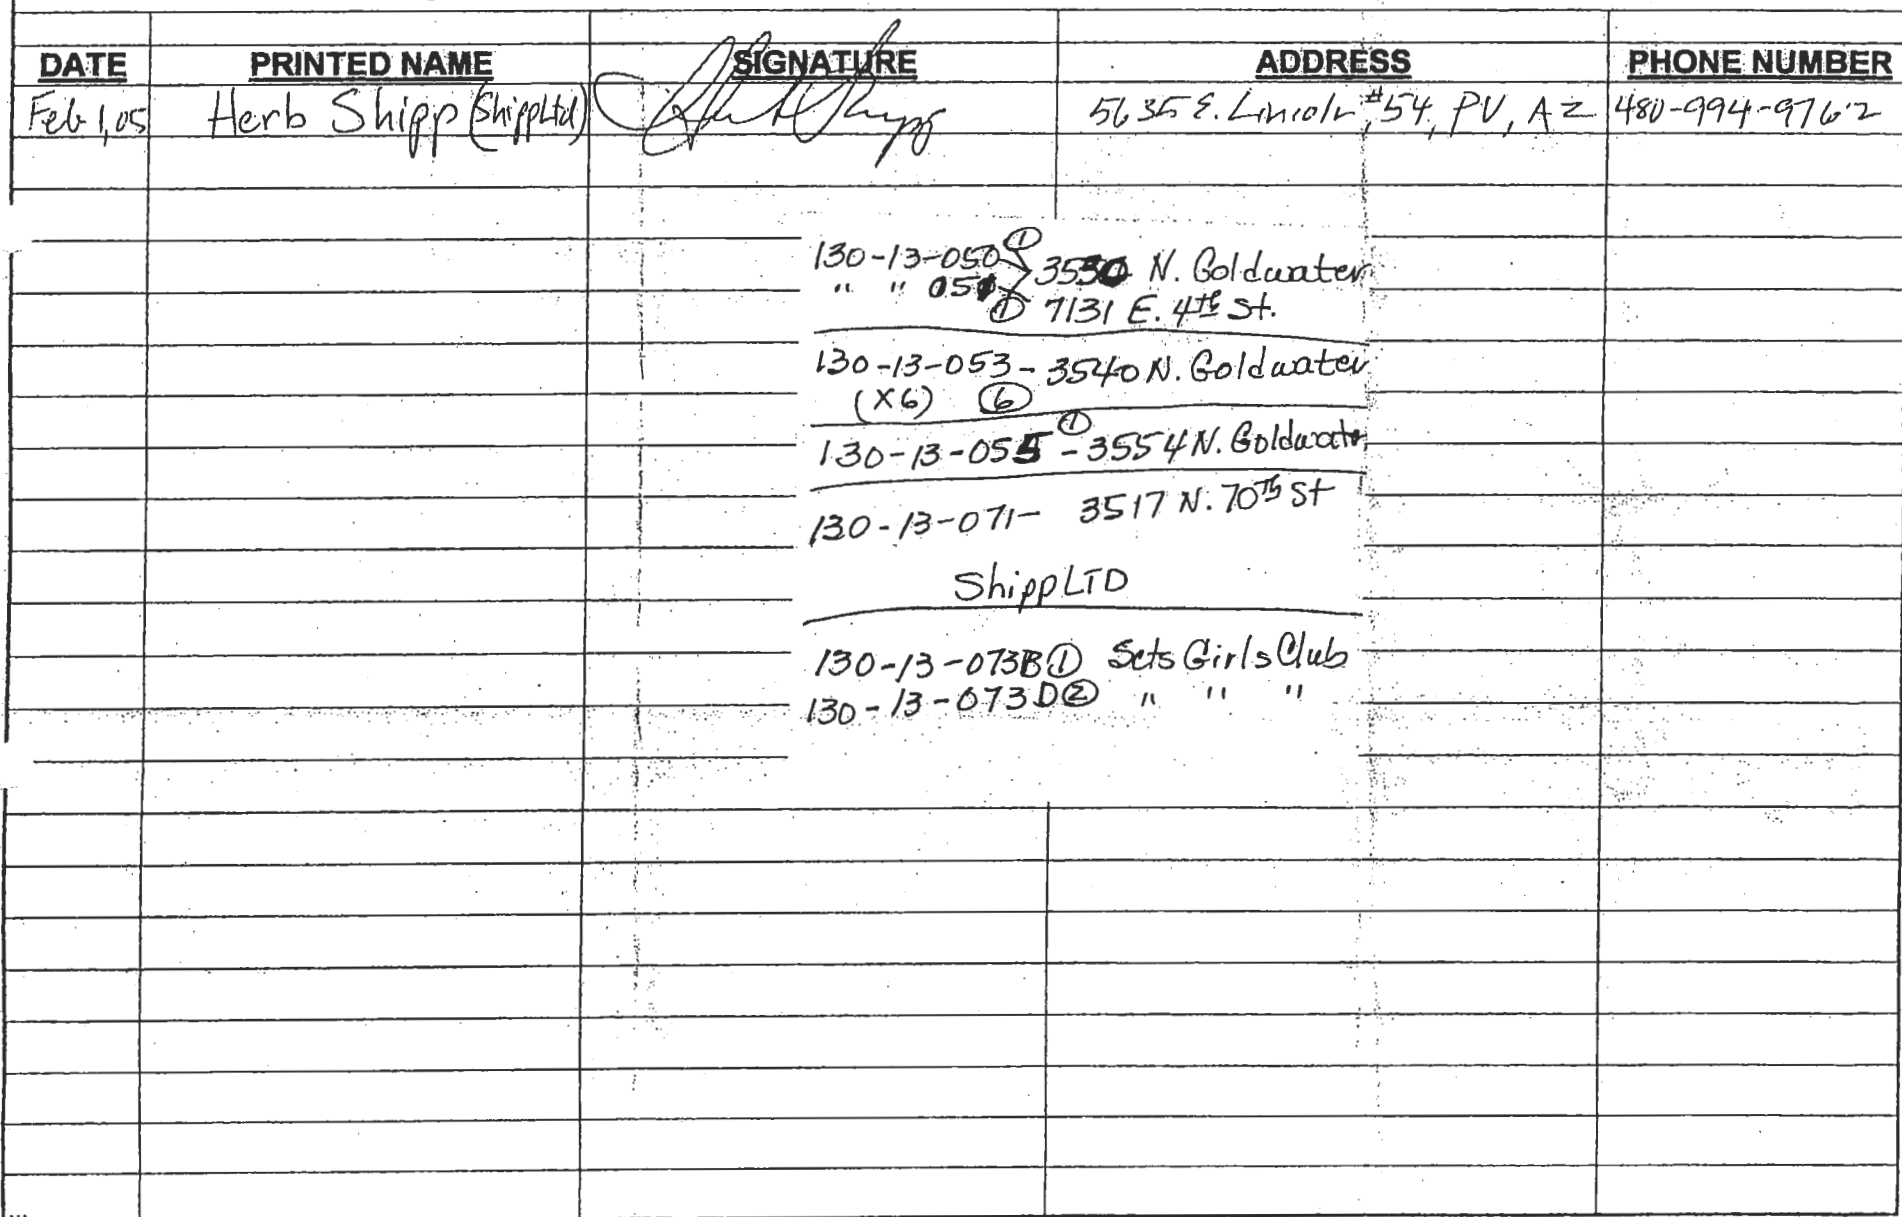 DATE PRINTED NAME SIGNATURE ADDRESS PHONE NUMBER
Feb 1,05 Herb Shipp (Shipp Ltd) 5635 E. Lincoln, #54, PV, AZ 480-994-9762
130-13-050 ① 3530 N. Goldwater
" " 051 ① 7131 E. 4th St.
130-13-053 - 3540 N. Goldwater
(X6) ⑥
130-13-055 ① - 3554 N. Goldwater
130-13-071- 3517 N. 70th St
Shipp LTD
130-13-073B ① Scts Girls Club
130-13-073D ② " " "